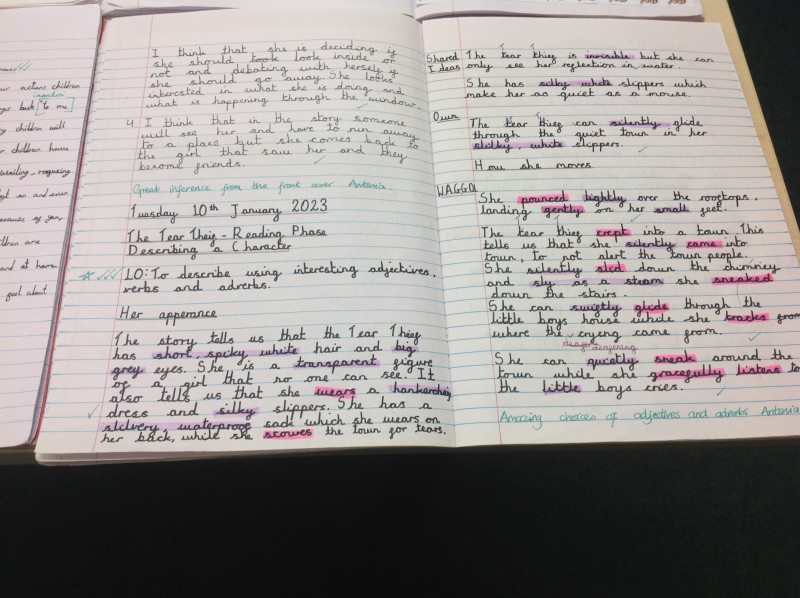 ur actions children
mentlis
ys back [to me]
y children will
r children have
wailing, requsing
ecause of you,
ldren are
nd at home.
feel about
I think that she is deciding if
she should took look inside or
not and debating with herself if
she should go away. She looks
interested in what she is doing and
what is happening through the window.
4. I think that in the story someone
will see her and have to run away
to a place but she comes back to
the girl that saw her and they
become friends.
Great inference from the front cover Antonia.
Tuesday 10th January 2023
The Tear Theif - Reading Phase
Describing a Character
LO: To describe using interesting adjectives,
verbs and adverbs.
Her apperance
The story tells us that the Tear Thief
has short, spiky, white hair and big
grey eyes. She is a transparent figure
of a girl that no one can see. It
also tells us that she wears a hankercheif
dress and silky slippers. She has a
slilvery waterproof sack which she wears on
her back, while she scowes the town for tears.
Shared Ideas
The tear thief is invisible but she can
only see her reflection in water.
She has silky white slippers which
make her as quiet as a mouse.
Own
The tear thief can silently glide
through the quiet town in her
slilky white slippers.
How she moves
WAGGOL
She pounced lightly over the rooftops,
landing gently on her small feet.
The tear thief crept into a town. This
tells us that she silently came into
town, to not alert the town people.
She silently slid down the chimney
and sly as a steam she sneaked
down the stairs.
She can swiftly glide through the
little boys house while she tracks from
where the crying came from.
deafeningly
She can quietly sneak around the
town while she gracefully listens to
the little boys cries.
Amazing choices of adjectives and adverbs Antonia